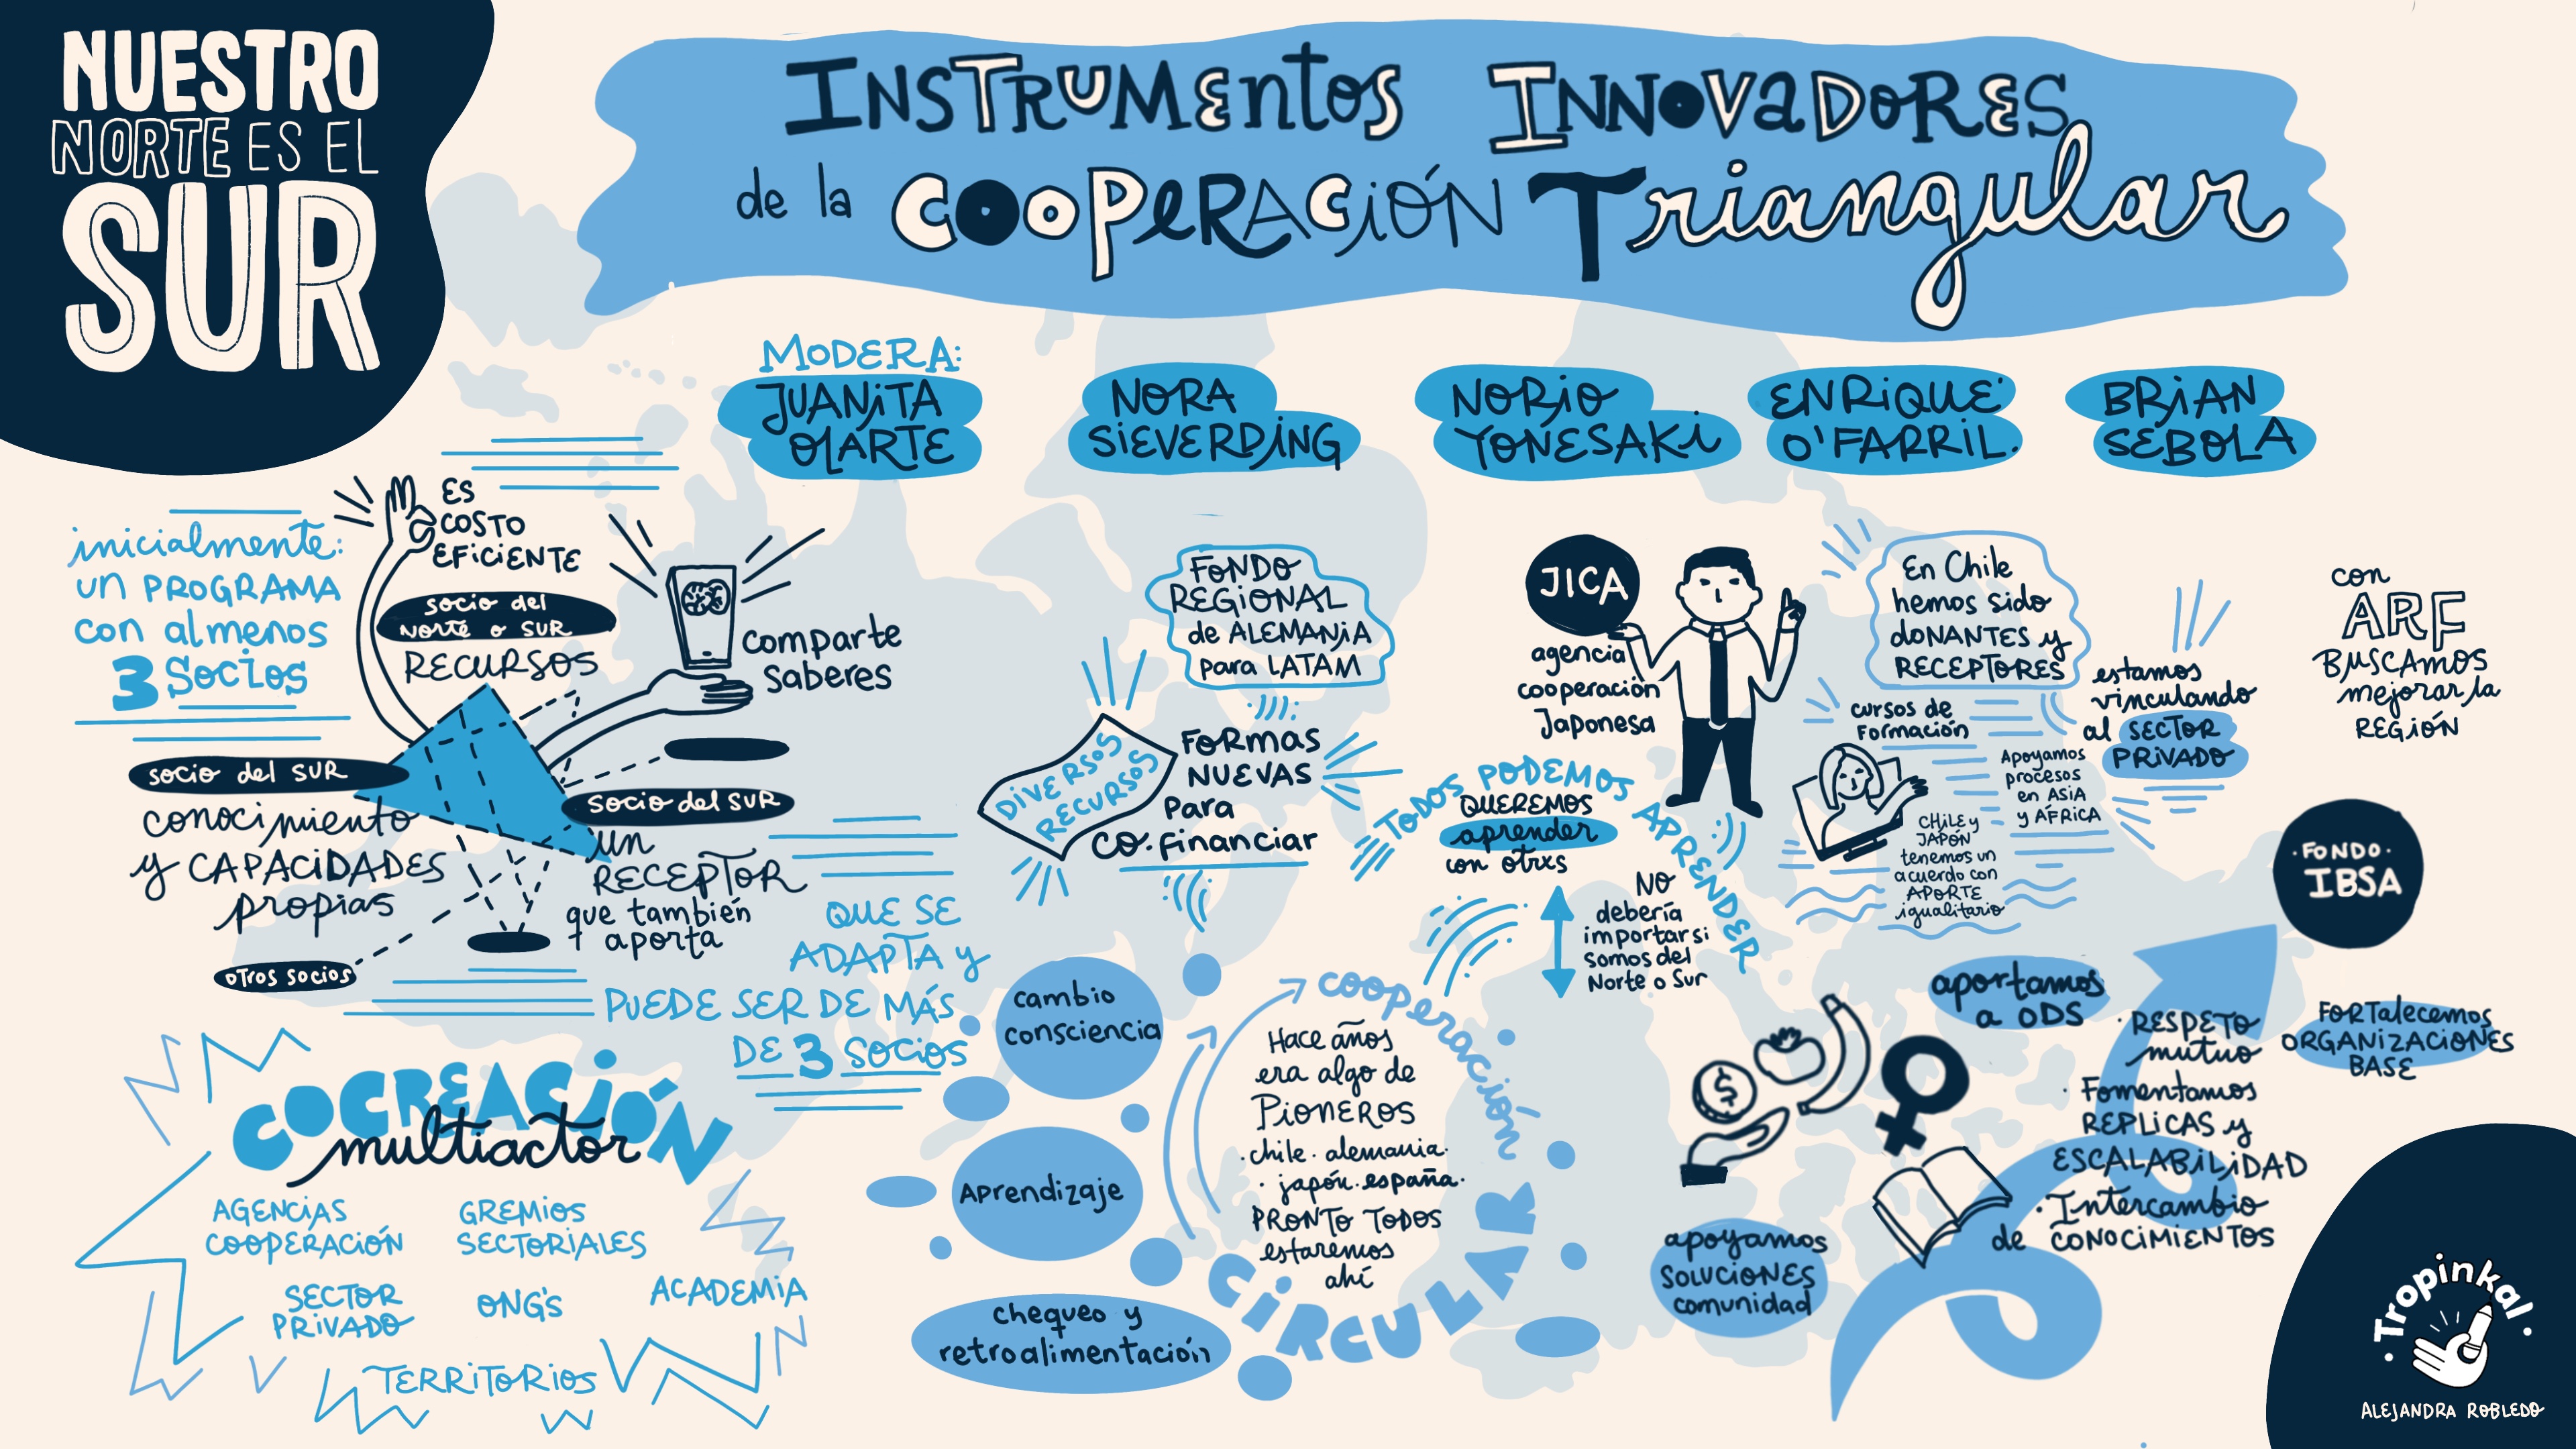 NUESTRO
NORTE ES EL
SUR
INSTRUMENTOS INNOVADORES
de la COOPERACIÓN TRIANGULAR
MODERA:
JUANITA
OLARTE
NORA
SIEVERDING
NORIO
YONESAKI
ENRIQUE
O'FARRIL.
BRIAN
SEBOLA
inicialmente:
UN PROGRAMA
con almenos
3 SOCIOS
ES
COSTO
EFICIENTE
socio del
Norte o SUR
RECURSOS
comparte
saberes
socio del SUR
conocimiento
y CAPACIDADES
propias
socio del SUR
un
RECEPTOR
que también
aporta
otros socios
QUE SE
ADAPTA y
PUEDE SER DE MÁS
DE 3 SOCIOS
COCREACIÓN
multiactor
AGENCIAS
COOPERACIÓN
GREMIOS
SECTORIALES
SECTOR
PRIVADO
ONG'S
ACADEMIA
TERRITORIOS
FONDO
REGIONAL
de ALEMANIA
para LATAM
DIVERSOS
RECURSOS
FORMAS
NUEVAS
Para
CO.financiar
cambio
consciencia
Aprendizaje
chequeo y
retroalimentación
cooperación
CIRCULAR
Hace años
era algo de
PIONEROS
·chile·alemania·
·japón·españa·
PRONTO TODOS
estaremos
ahí
JICA
agencia
cooperación
Japonesa
TODOS PODEMOS APRENDER
QUEREMOS
aprender
con otrxs
NO
debería
importar si
somos del
Norte o Sur
En Chile
hemos sido
DONANTES y
RECEPTORES
cursos de
Formación
Apoyamos
procesos
en ASIA
y ÁFRICA
CHILE y
JAPÓN
tenemos un
acuerdo con
APORTE
igualitario
estamos
vinculando
al SECTOR
PRIVADO
con
ARF
BUSCAMOS
mejorar la
REGIÓN
·FONDO·
IBSA
aportamos
a ODS
$
apoyamos
SOLUCIONES
comunidad
·RESPETO
mutuo
·Fomentamos
REPLICAS y
ESCALABILIDAD
·Intercambio
de CONOCIMIENTOS
FORTalecemos
ORGANIZACIONES
BASE
·Tropinkal·
ALEJANDRA ROBLEDO